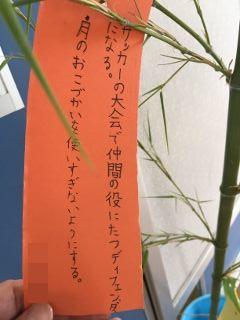 サッカーの大会で仲間の役にたつディフェンダー
になる。
・月のおこづかいを使いすぎないようにする。